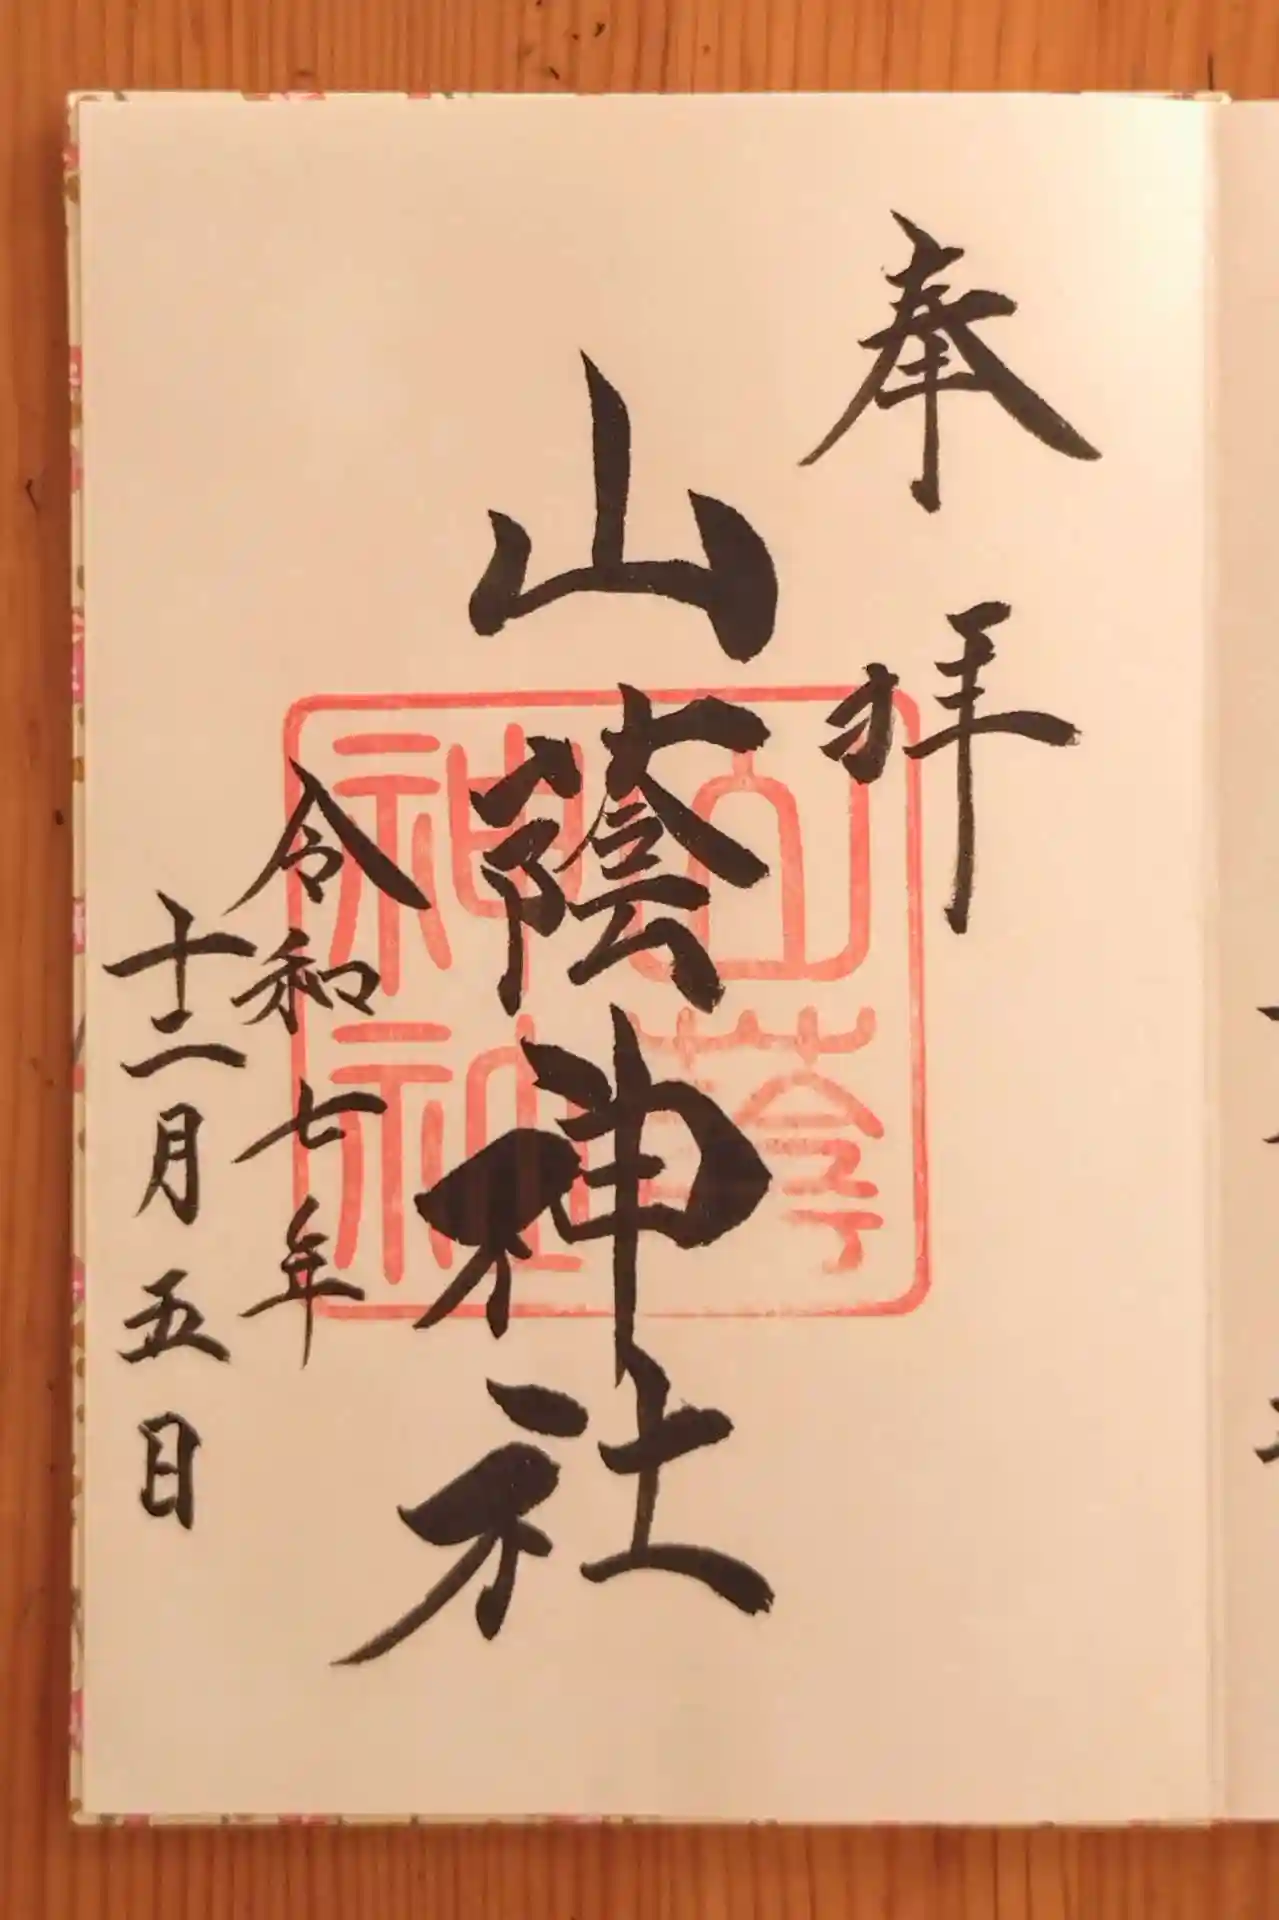 奉拝
山蔭神社
令和七年
十二月五日
山蔭
神社